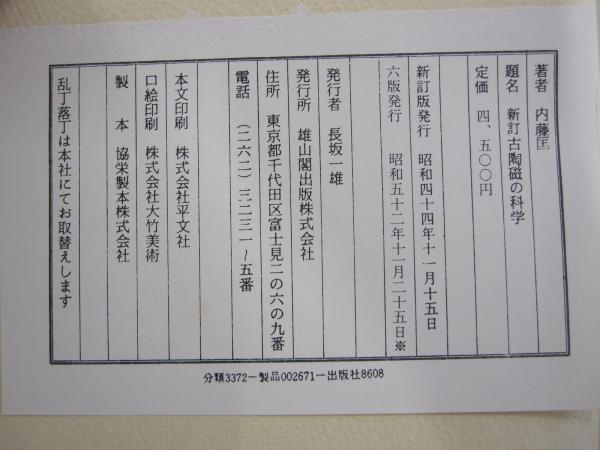 著者　内藤匡
題名　新訂古陶磁の科学
定価　四、五〇〇円
新訂版発行　昭和四十四年十一月十五日
六版発行　昭和五十二年十一月二十五日※
発行者　長坂一雄
発行所　雄山閣出版株式会社
住所　東京都千代田区富士見二の六の九番
電話　（二六二）三二三一～五番
本文印刷　株式会社平文社
口絵印刷　株式会社大竹美術
製本　協栄製本株式会社
乱丁落丁は本社にてお取替えします
分類3372ー製品002671ー出版社8608